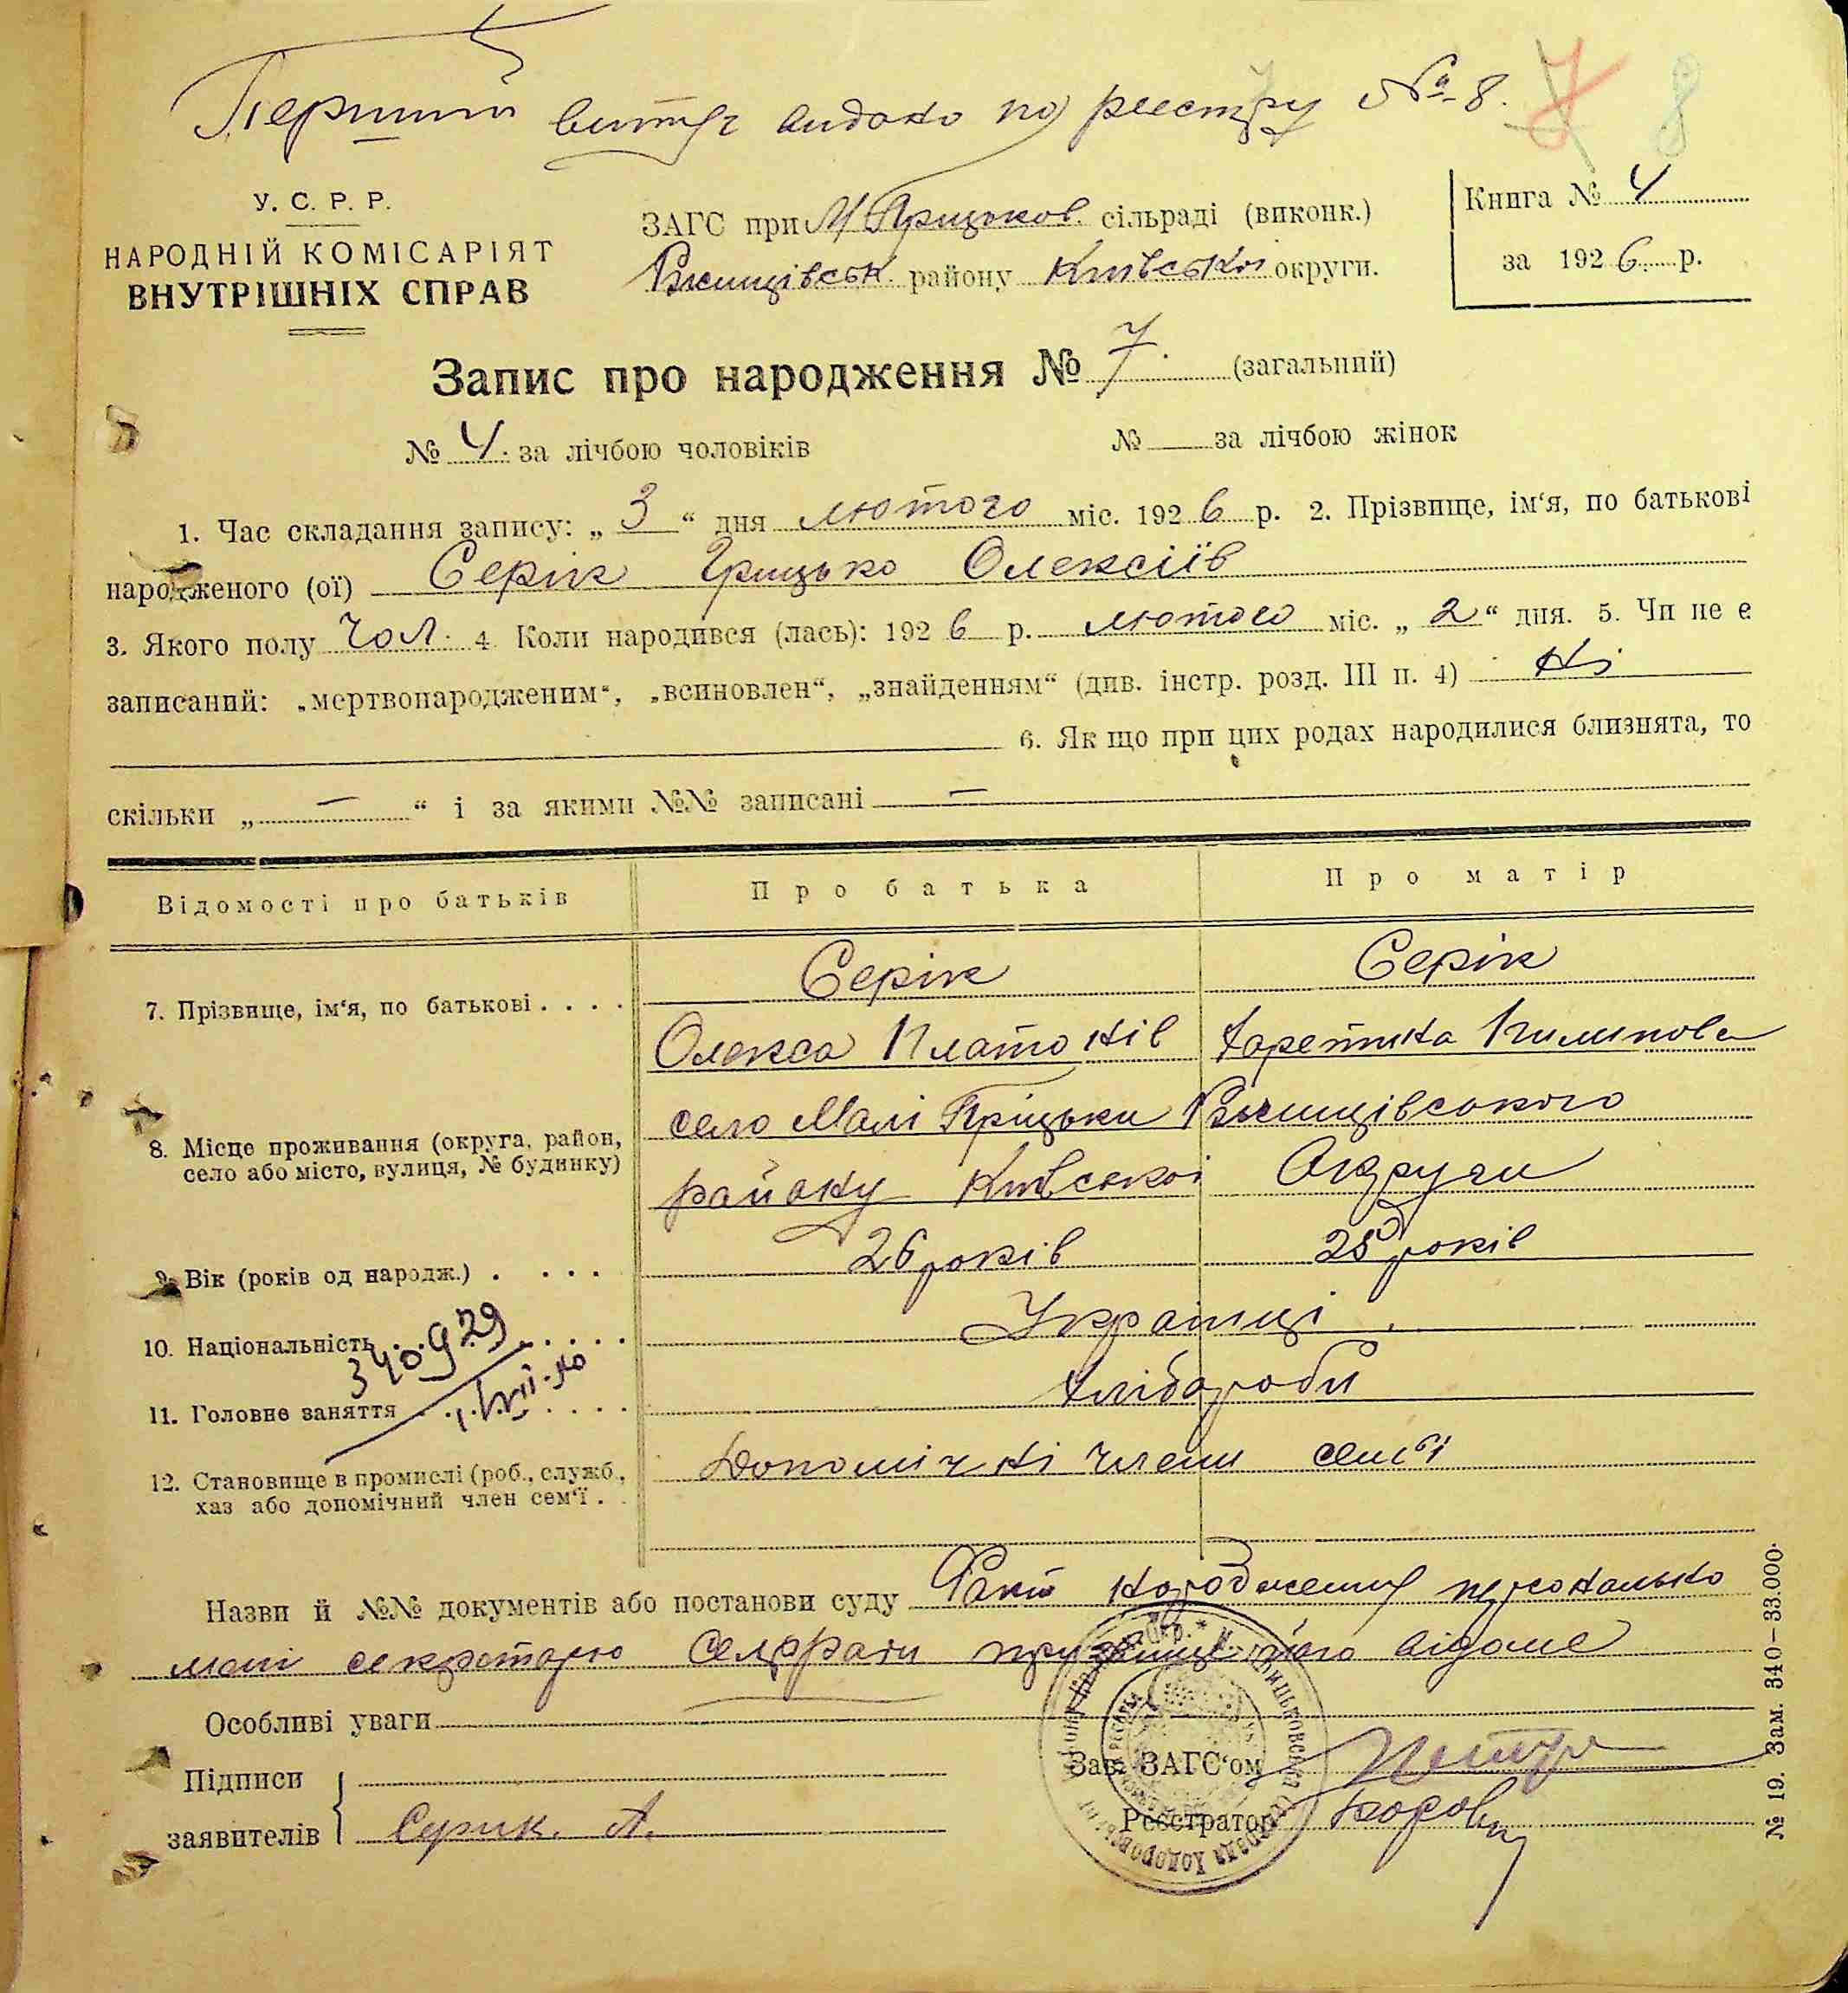 Перший витяг видано по реєстру № 8. 7 8
У. С. Р. Р.
НАРОДНІЙ КОМІСАРІЯТ
ВНУТРІШНІХ СПРАВ
ЗАГС при М Пріцьков. сільраді (виконк.)
Ржищівськ. району Київської округи.
Книга № 4
за 1926 р.
Запис про народження № 7. (загальний)
№ 4. за лічбою чоловіків № — за лічбою жінок
1. Час складання запису: „3“ дня лютого міс. 1926 р. 2. Прізвище, ім‘я, по батькові
народженого (ої) Серік Грицько Олексіїв
3. Якого полу Чол. 4. Коли народився (лась): 1926 р. лютого міс. „2“ дня. 5. Чи не є
записаний: „мертвонародженим“, „всиновлен“, „знайденням“ (див. інстр. розд. III п. 4) Ні
6. Як що при цих родах народилися близнята, то
скільки „—“ і за якими №№ записані —
Відомості про батьків Про батька Про матір
7. Прізвище, ім‘я, по батькові . . . . Серік Серік
Олекса Платонів Харетина Пилипова
8. Місце проживання (округа, район, село Малі Пріцьки Ржищівського
село або місто, вулиця, № будинку) району Київської Округи
9. Вік (років од народж.) . . . . 26 років 25 років
10. Національність . . . . Українці.
340929
11. Головне заняття . . . . Хлібороби
12. Становище в промислі (роб., служб., Допомічні члени сем‘ї
хаз або допомічний член сем‘ї . .
Назви й №№ документів або постанови суду Факт народження персонально
мені секретарю Селради прізвище його відоме
Особливі уваги
Підписи
заявителів Серик. А.
Зав. ЗАГС‘ом
Реєстратор
№ 19. Зам. 340–33.000.